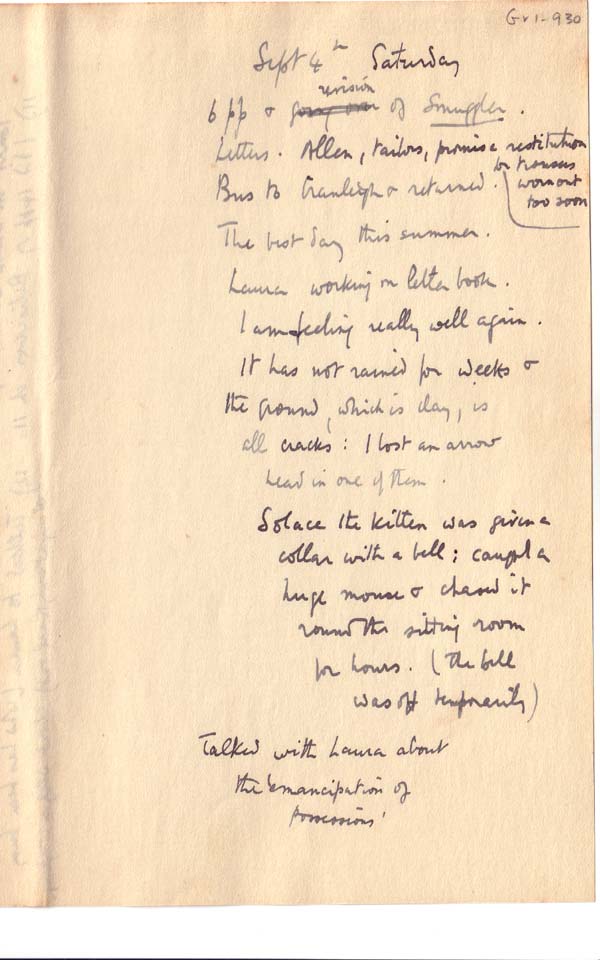 Gv1-930
Sept 4th Saturday
revision
6 pp & going over of Smuggler.
Letters. Allen, tailors, promise restitution
for trousers
Bus to Cranleigh & returned. worn out
too soon
The best day this summer.
Laura working on letter book.
I am feeling really well again.
It has not rained for weeks &
the ground, which is clay, is
all cracks: I lost an arrow
head in one of them.
Solace the kitten was given a
collar with a bell; caught a
huge mouse & chased it
round the sitting room
for hours. (The bell
was off temporarily)
Talked with Laura about
the 'emancipation of
possessions'